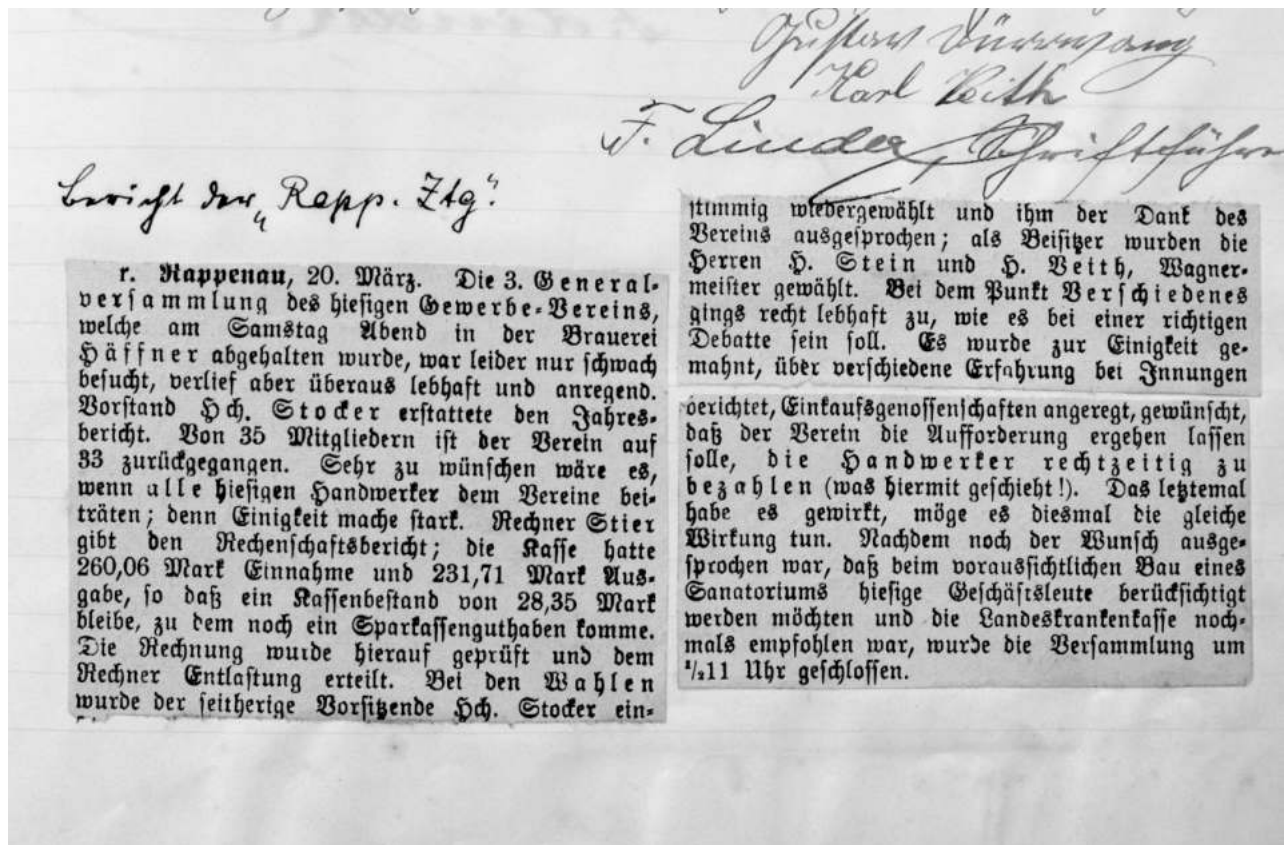 Gustav Dürrwang
Karl Veith
F. Linder, Schriftführer
Bericht der „Rapp. Ztg."
r. Rappenau, 20. März. Die 3. General-
versammlung des hiesigen Gewerbe-Vereins,
welche am Samstag Abend in der Brauerei
Häffner abgehalten wurde, war leider nur schwach
besucht, verlief aber überaus lebhaft und anregend.
Vorstand Hch. Stocker erstattete den Jahres-
bericht. Von 35 Mitgliedern ist der Verein auf
33 zurückgegangen. Sehr zu wünschen wäre es,
wenn alle hiesigen Handwerker dem Vereine bei-
träten; denn Einigkeit mache stark. Rechner Stier
gibt den Rechenschaftsbericht; die Kasse hatte
260,06 Mark Einnahme und 231,71 Mark Aus-
gabe, so daß ein Kassenbestand von 28,35 Mark
bleibe, zu dem noch ein Sparkassenguthaben komme.
Die Rechnung wurde hierauf geprüft und dem
Rechner Entlastung erteilt. Bei den Wahlen
wurde der seitherige Vorsitzende Hch. Stocker ein-
stimmig wiedergewählt und ihm der Dank des
Vereins ausgesprochen; als Beisitzer wurden die
Herren H. Stein und H. Veith, Wagner-
meister gewählt. Bei dem Punkt Verschiedenes
gings recht lebhaft zu, wie es bei einer richtigen
Debatte sein soll. Es wurde zur Einigkeit ge-
mahnt, über verschiedene Erfahrung bei Innungen
berichtet, Einkaufsgenossenschaften angeregt, gewünscht,
daß der Verein die Aufforderung ergehen lassen
solle, die Handwerker rechtzeitig zu
bezahlen (was hiermit geschieht!). Das letztemal
habe es gewirkt, möge es diesmal die gleiche
Wirkung tun. Nachdem noch der Wunsch ausge-
sprochen war, daß beim voraussichtlichen Bau eines
Sanatoriums hiesige Geschäftsleute berücksichtigt
werden möchten und die Landeskrankenkasse noch-
mals empfohlen war, wurde die Versammlung um
½11 Uhr geschlossen.